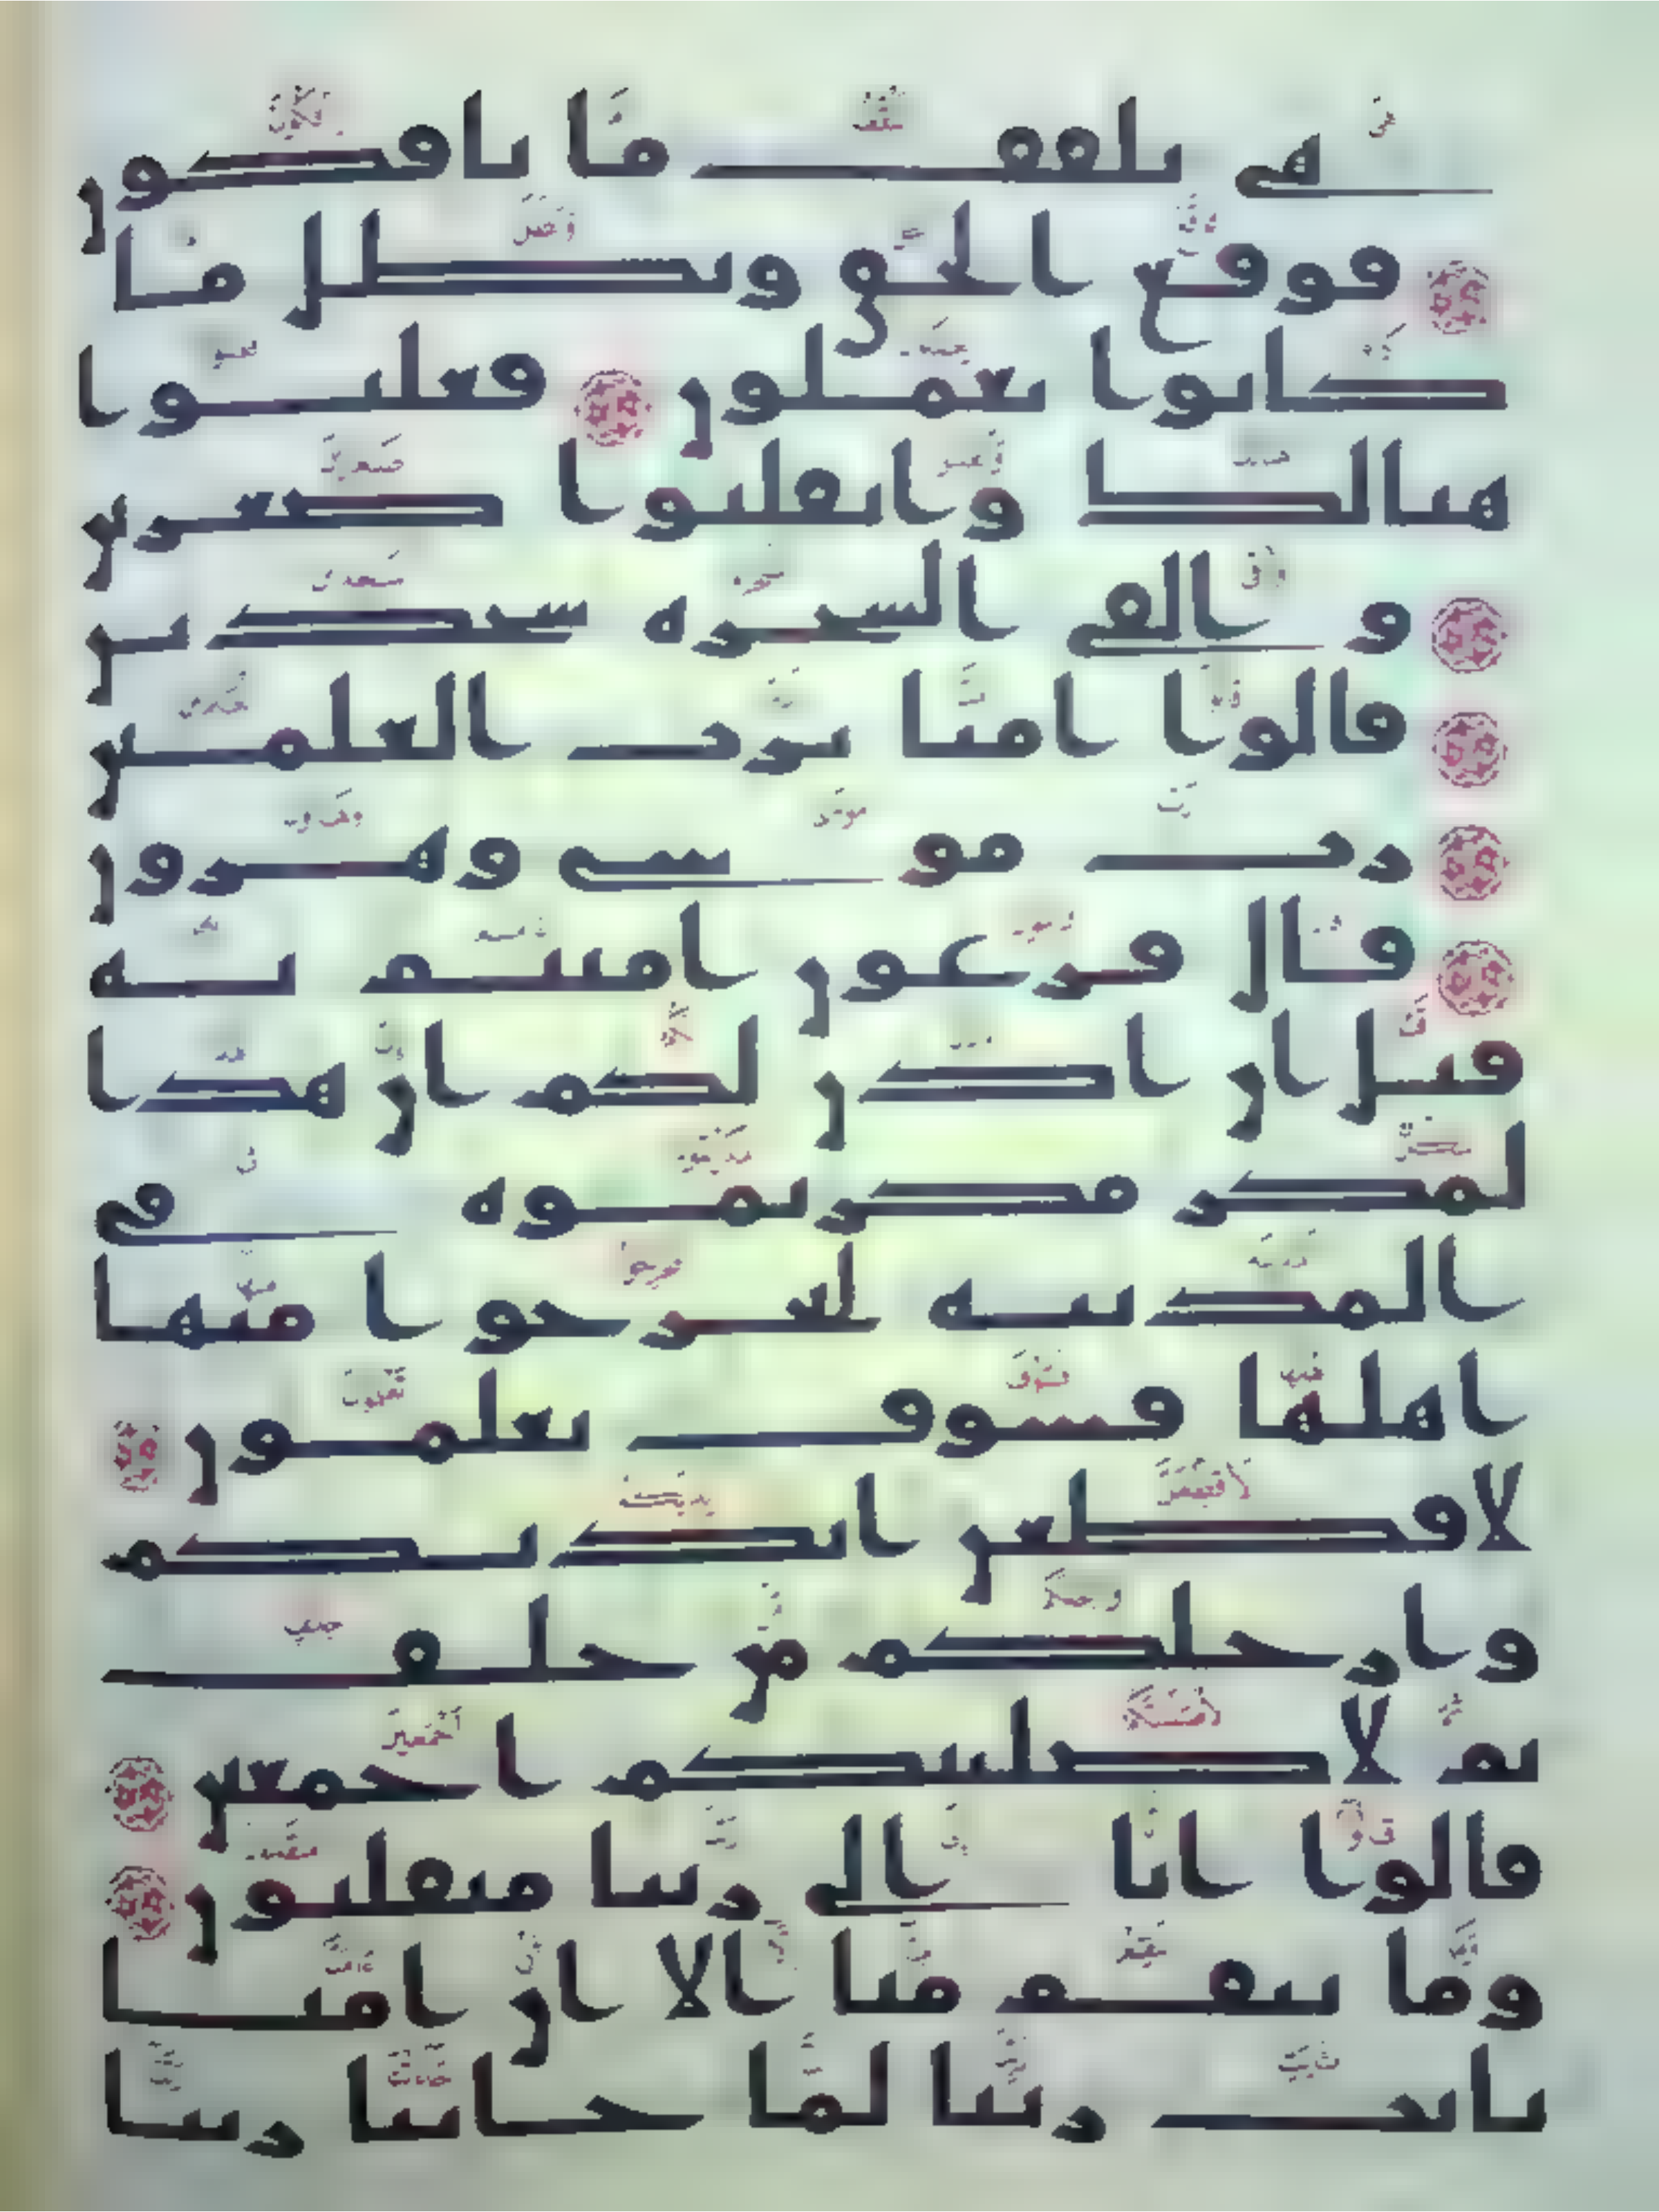 هى تلقف ما يافكون
فوقع الحق وبطل ما
كانوا يعملون فغلبوا
هنالك وانقلبوا صغرين
والقى السحرة سجدين
قالوا امنا برب العلمين
رب موسى وهرون
قال فرعون امنتم به
قبل ان اذن لكم ان هذا
لمكر مكرتموه فى
المدينة لتخرجوا منها
اهلها فسوف تعلمون
لاقطعن ايديكم
وارجلكم من خلف
ثم لاصلبنكم اجمعين
قالوا انا الى ربنا منقلبون
وما تنقم منا الا ان امنا
بايت ربنا لما جاتنا ربنا